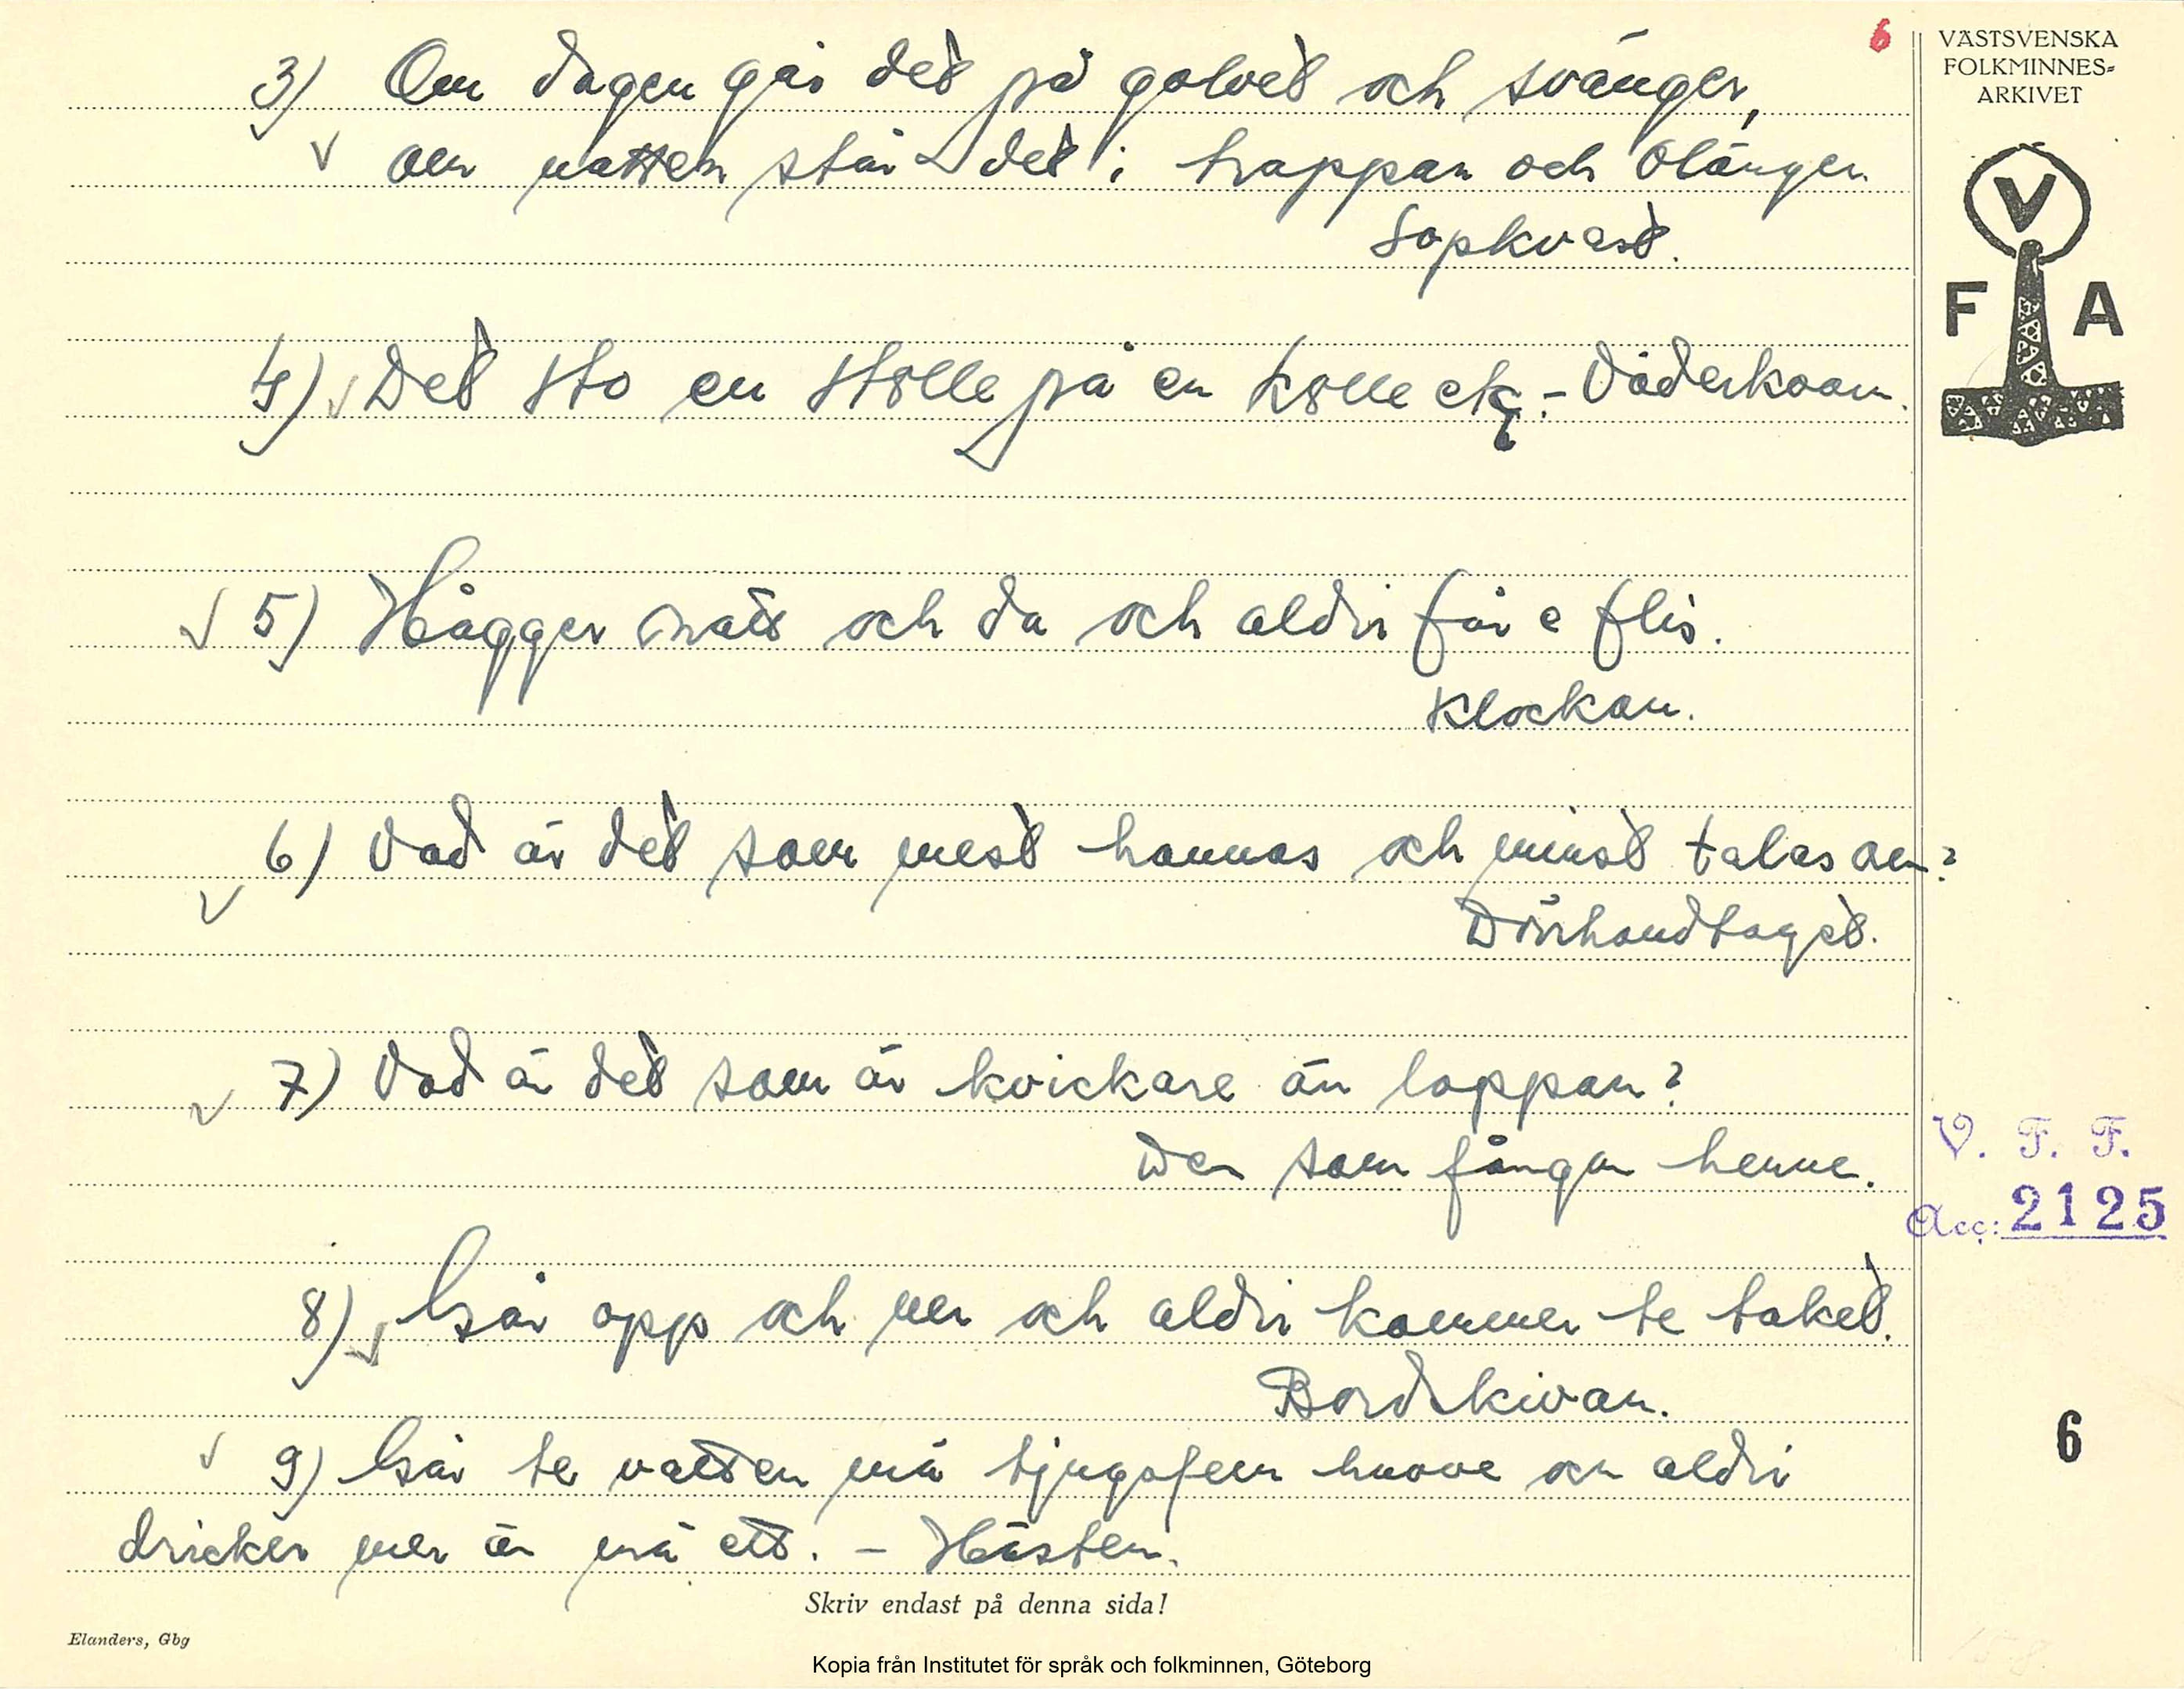 6
VÄSTSVENSKA
FOLKMINNES=
ARKIVET
V
F A
3) Om dagen går det på golvet och svänger,
om natten står det i trappan och blänger
Sopkvast.
4) Det sto en stolle på en kolle etc. - Väderkvarn.
5) Hågger natt och da och aldri får e flis.
Klockan.
6) Vad är det som mest hannas och minst talas om?
Dörrhandtaget.
7) Vad är det som är kvickare än loppan?
Den som fångar henne.
V. F. F.
Acc: 2125
8) Går opp och ner och aldri kommer te taket.
Bordskivan.
6
9) Går te vatten mä tjugofem huvve an aldri
dricker mer än mä ett. - Hästen.
Skriv endast på denna sida!
Elanders, Gbg
Kopia från Institutet för språk och folkminnen, Göteborg